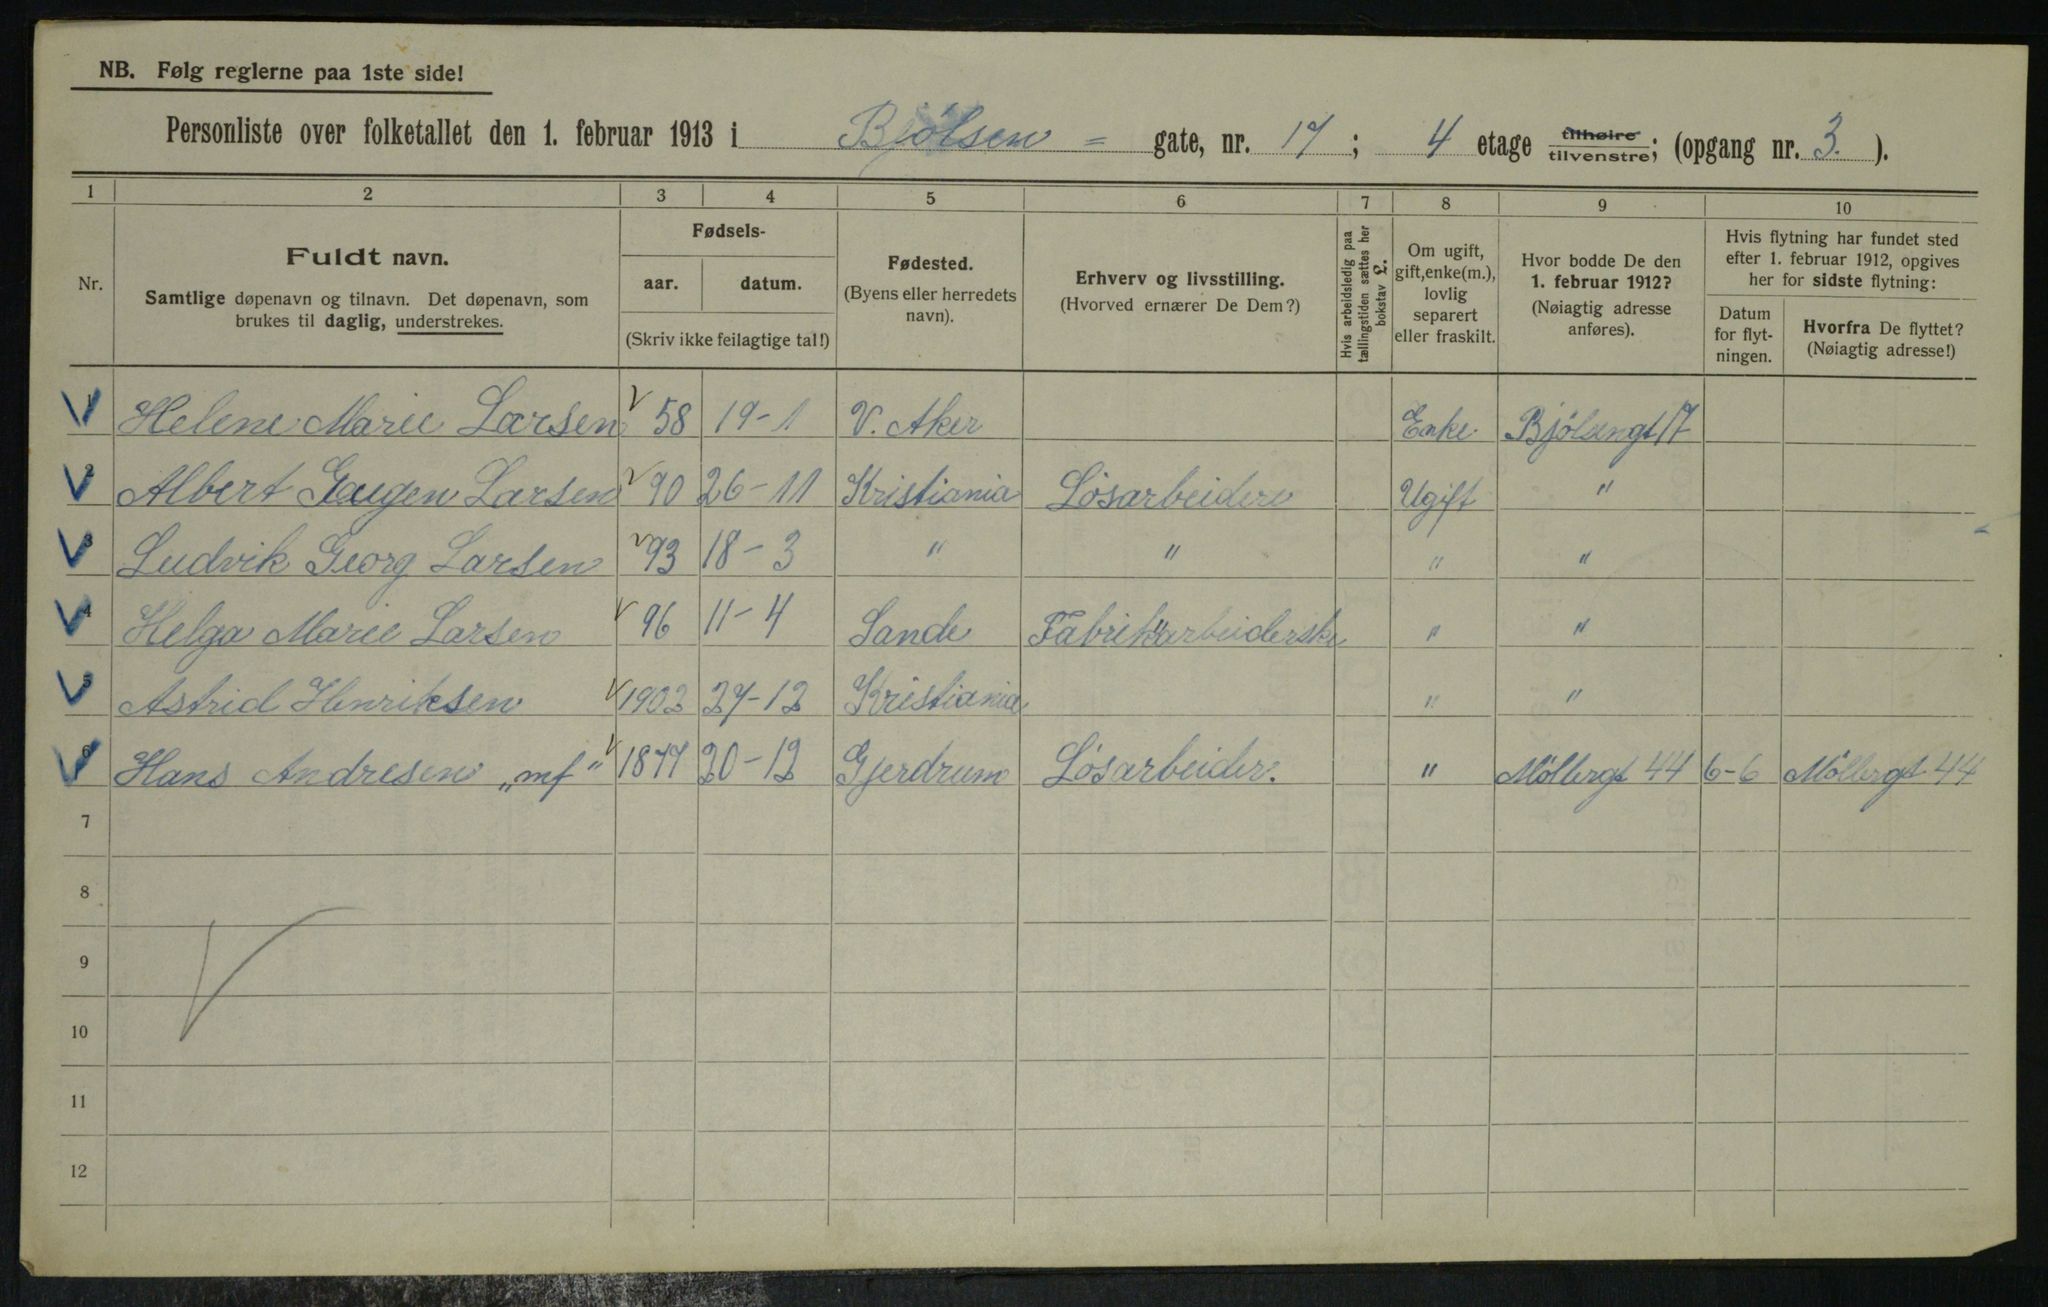 NB. Følg reglerne paa 1ste side!
Personliste over folketallet den 1. februar 1913 i Bjölsen = gate, nr. 17; 4 etage tilhøire tilvenstre; (opgang nr. 3.).
1 2 3 4 5 6 7 8 9 10
Nr.
Fuldt navn.
Samtlige døpenavn og tilnavn. Det døpenavn, som
brukes til daglig, understrekes.
Fødsels-
aar. datum.
(Skriv ikke feilagtige tal!)
Fødested.
(Byens eller herredets
navn).
Erhverv og livsstilling.
(Hvorved ernærer De Dem?)
Hvis arbeidsledig paa
tællingstiden sættes her
bokstav L.
Om ugift,
gift, enke(m.),
lovlig
separert
eller fraskilt.
Hvor bodde De den
1. februar 1912?
(Nøiagtig adresse
anføres).
Hvis flytning har fundet sted
efter 1. februar 1912, opgives
her for sidste flytning:
Datum
for flyt-
ningen.
Hvorfra De flyttet?
(Nøiagtig adresse!)
1 Helene Marie Larsen 58 19-1 V. Aker Enke. Bjölsengt 17
2 Albert Eugen Larsen 90 26-11 Kristiania Lösarbeidere Ugift "
3 Ludvik Georg Larsen 93 18-3 " " " "
4 Helga Marie Larsen 96 11-4 Sande Fabrikarbeiderske " "
5 Astrid Henriksen 1902 27-12 Kristiania " "
6 Hans Andresen „mf“ 1877 20-12 Gjerdrum Lösarbeider. " Möllergt 44 6-6 Möllergt 44
7
8
9
10
11
12